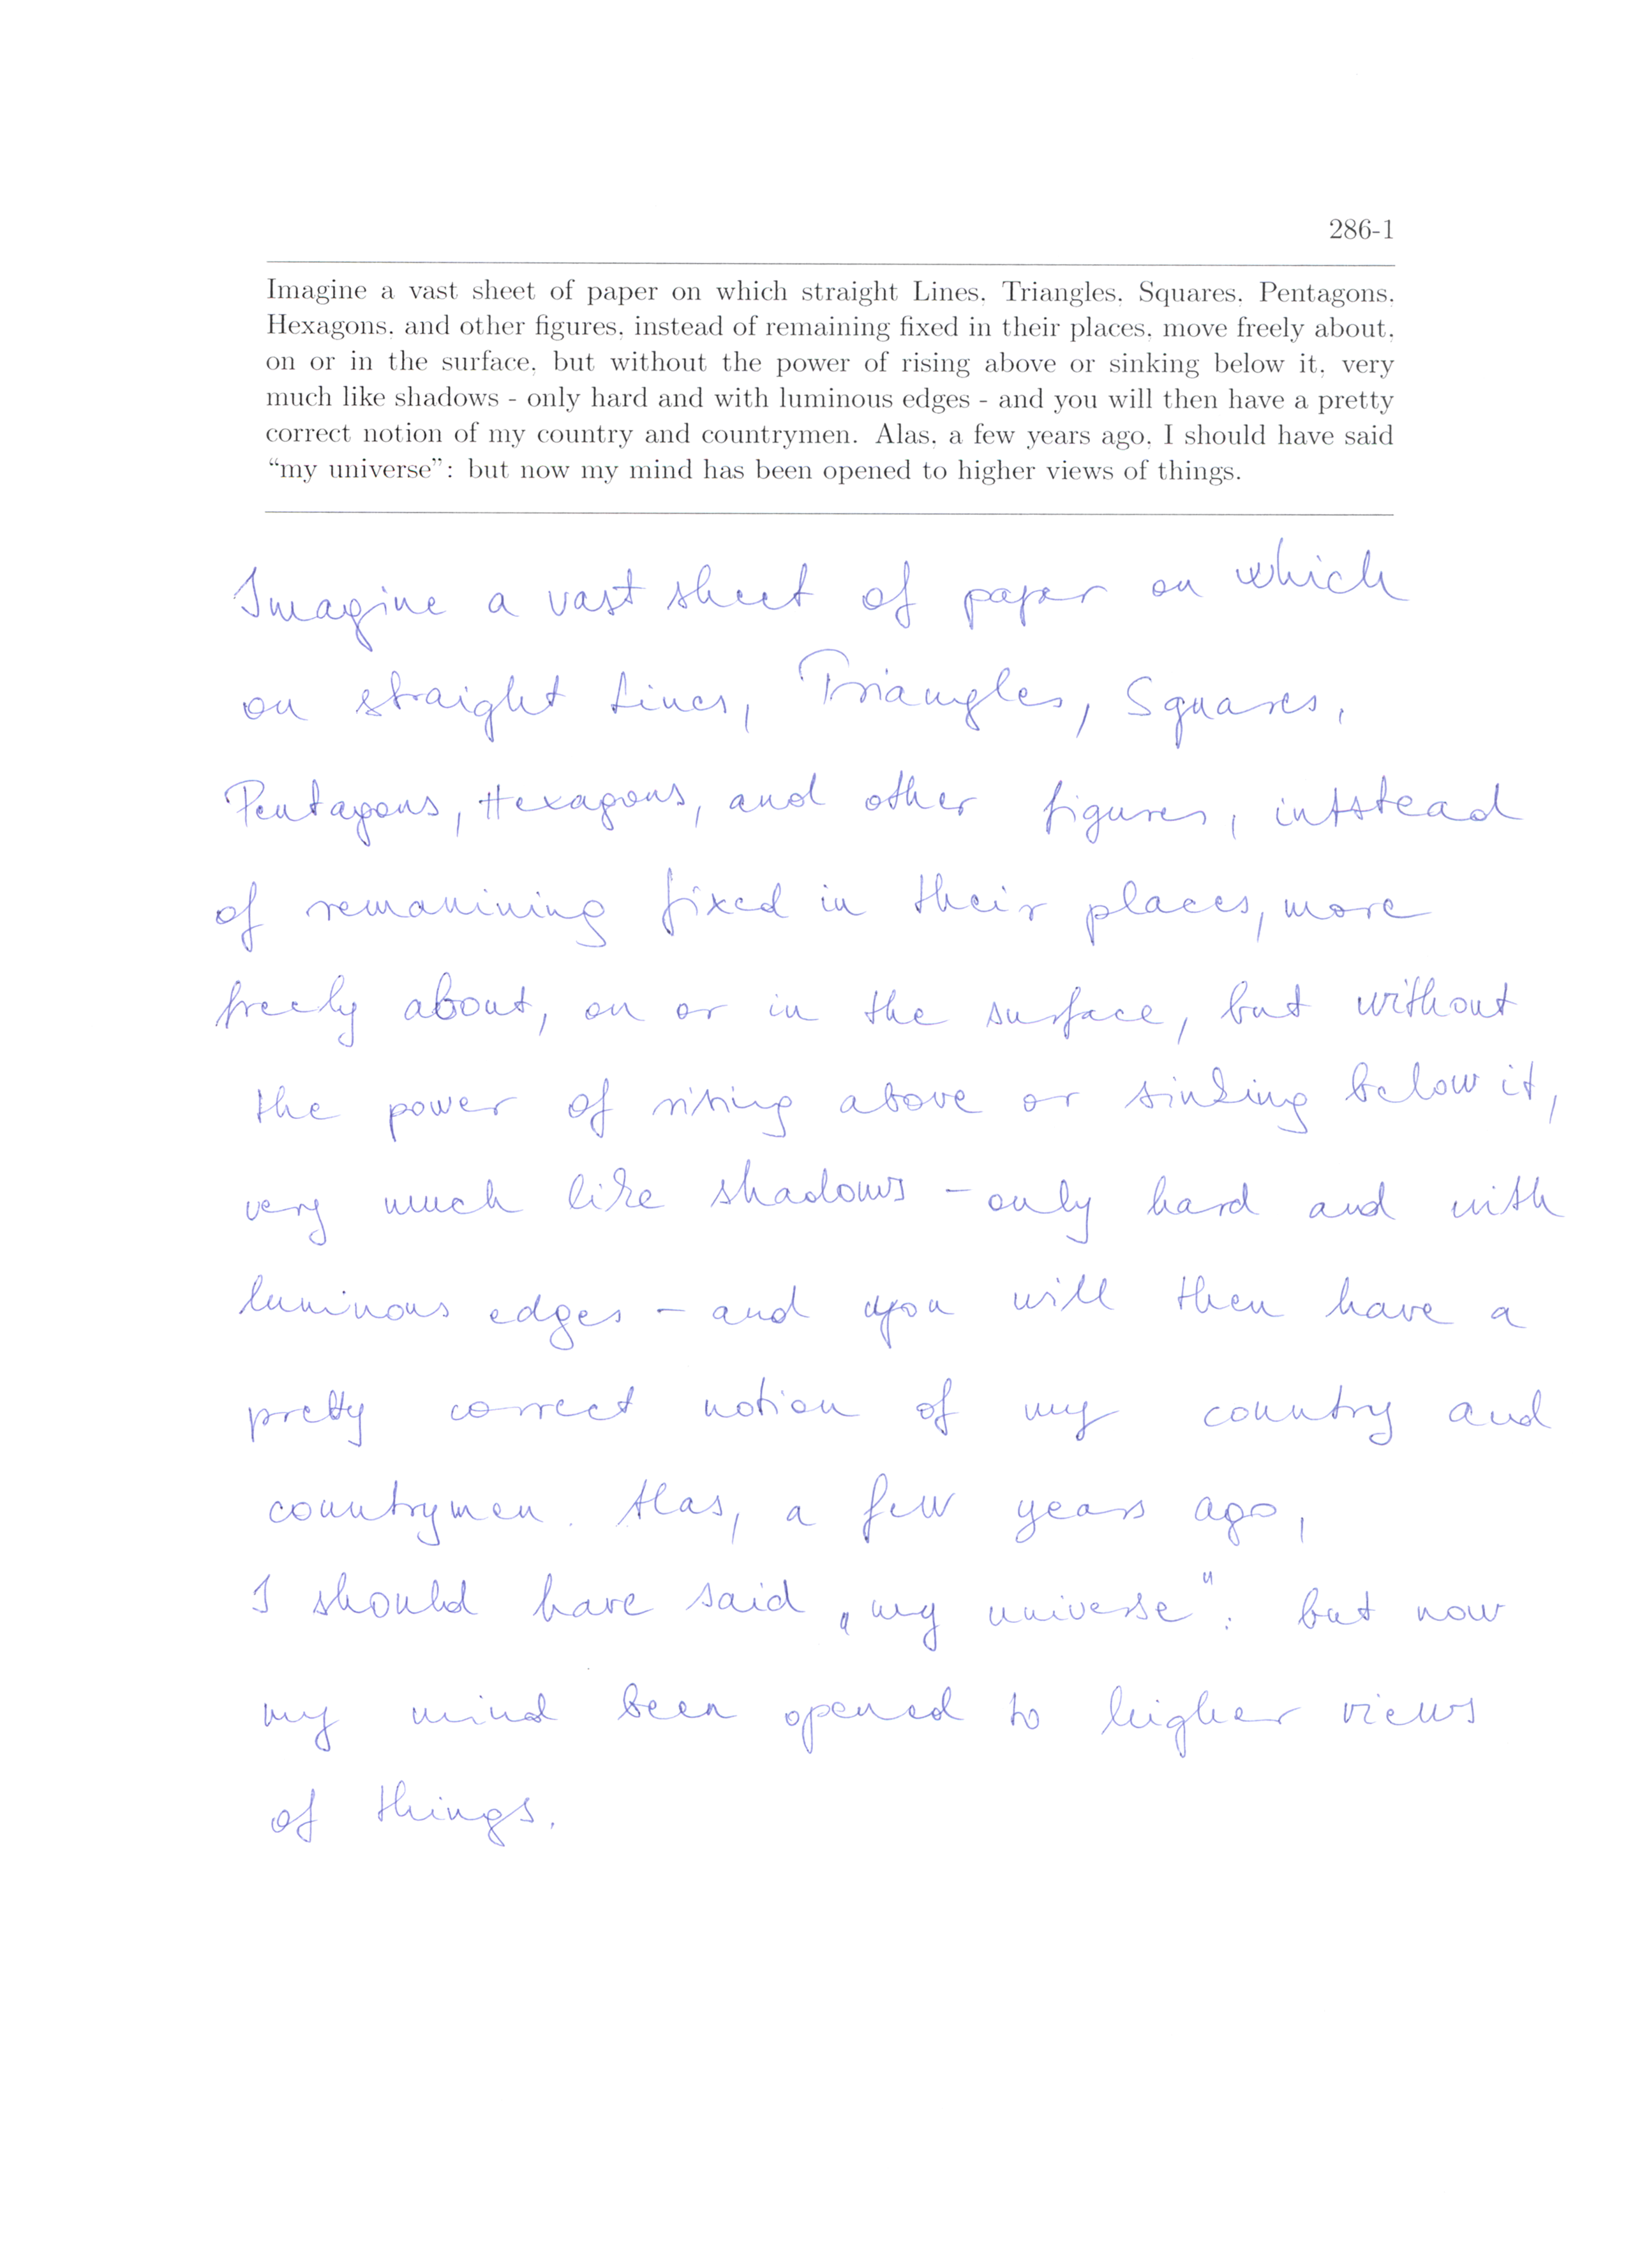 286-1
Imagine a vast sheet of paper on which straight Lines, Triangles, Squares, Pentagons,
Hexagons, and other figures, instead of remaining fixed in their places, move freely about,
on or in the surface, but without the power of rising above or sinking below it, very
much like shadows - only hard and with luminous edges - and you will then have a pretty
correct notion of my country and countrymen. Alas, a few years ago, I should have said
“my universe”: but now my mind has been opened to higher views of things.
Imagine a vast sheet of paper on which
on straight Lines, Triangles, Squares,
Pentagons, Hexagons, and other figures, intstead
of remanining fixed in their places, more
freely about, on or in the surface, but without
the power of rising above or sinking below it,
very much like shadows - only hard and with
luminous edges - and you will then have a
pretty correct notion of my country and
countrymen. Alas, a few years ago,
I should have said „my universe": but now
my mind been opened to higher views
of things.